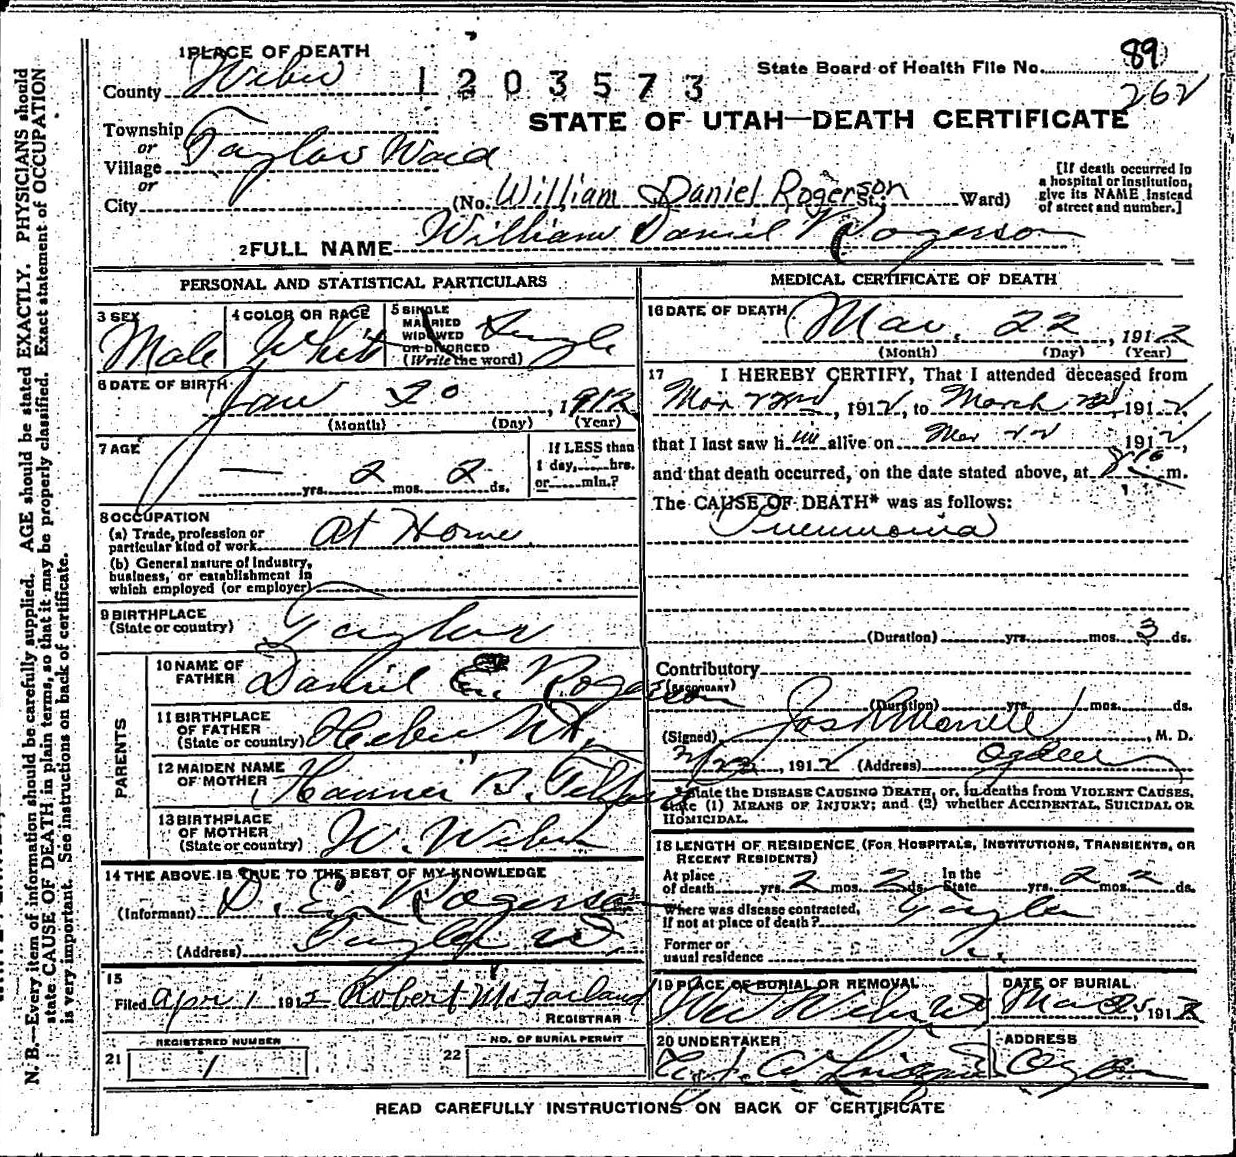 1 PLACE OF DEATH
County Weber
1203573
State Board of Health File No. 89
262
STATE OF UTAH—DEATH CERTIFICATE
Township
or
Village Taylor Ward
or
City
(No. William Daniel Rogerson St.; Ward)
[If death occurred in
a hospital or institution,
give its NAME instead
of street and number.]
2 FULL NAME William Daniel Rogerson
PERSONAL AND STATISTICAL PARTICULARS
3 SEX
Male
4 COLOR OR RACE
White
5 SINGLE
MARRIED
WIDOWED
OR DIVORCED
(Write the word)
Single
6 DATE OF BIRTH
Jan 20, 1912
(Month) (Day) (Year)
7 AGE
— yrs. 2 mos. 2 ds.
If LESS than
1 day, hrs.
or min.?
8 OCCUPATION
(a) Trade, profession or
particular kind of work At Home
(b) General nature of industry,
business, or establishment in
which employed (or employer)
9 BIRTHPLACE
(State or country) Taylor
PARENTS
10 NAME OF
FATHER Daniel E. Rogerson
11 BIRTHPLACE
OF FATHER
(State or country) Heber Ut.
12 MAIDEN NAME
OF MOTHER B.
13 BIRTHPLACE
OF MOTHER
(State or country) W. Weber
14 THE ABOVE IS TRUE TO THE BEST OF MY KNOWLEDGE
(Informant) D. E. Rogerson
(Address) Taylor
15
Filed Apr 1 1912 Robert McFarland
REGISTRAR
REGISTERED NUMBER
21 1
NO. OF BURIAL PERMIT
22
MEDICAL CERTIFICATE OF DEATH
16 DATE OF DEATH
Mar. 22, 1912
(Month) (Day) (Year)
17 I HEREBY CERTIFY, That I attended deceased from
Mar 22nd, 1912, to March 22, 1912,
that I last saw him alive on Mar 22 1912,
and that death occurred, on the date stated above, at m.
The CAUSE OF DEATH* was as follows:
Pneumonia
(Duration) yrs. mos. 3 ds.
Contributory
(SECONDARY)
(Duration) yrs. mos. ds.
(Signed) Jos R Morrell, M. D.
1912 (Address) Ogden
* State the DISEASE CAUSING DEATH, or, in deaths from VIOLENT CAUSES,
state (1) MEANS OF INJURY; and (2) whether ACCIDENTAL, SUICIDAL OR
HOMICIDAL.
18 LENGTH OF RESIDENCE (FOR HOSPITALS, INSTITUTIONS, TRANSIENTS, OR
RECENT RESIDENTS)
At place In the
of death yrs. 2 mos. 2 ds. State yrs. 2 mos. 2 ds.
Where was disease contracted,
if not at place of death? Taylor
Former or
usual residence
19 PLACE OF BURIAL OR REMOVAL
West Weber
DATE OF BURIAL
1912
20 UNDERTAKER
ADDRESS
Ogden
READ CAREFULLY INSTRUCTIONS ON BACK OF CERTIFICATE
N. B.—Every item of information should be carefully supplied. AGE should be stated EXACTLY. PHYSICIANS should
state CAUSE OF DEATH in plain terms, so that it may be properly classified. Exact statement of OCCUPATION
is very important. See instructions on back of certificate.